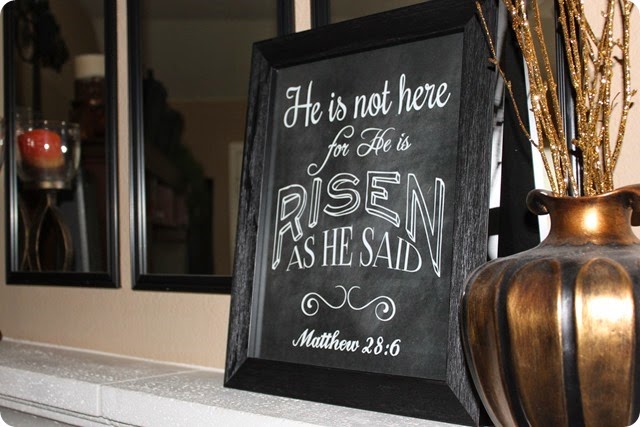 He is not here
for He is
RISEN
AS HE SAID
Matthew 28:6